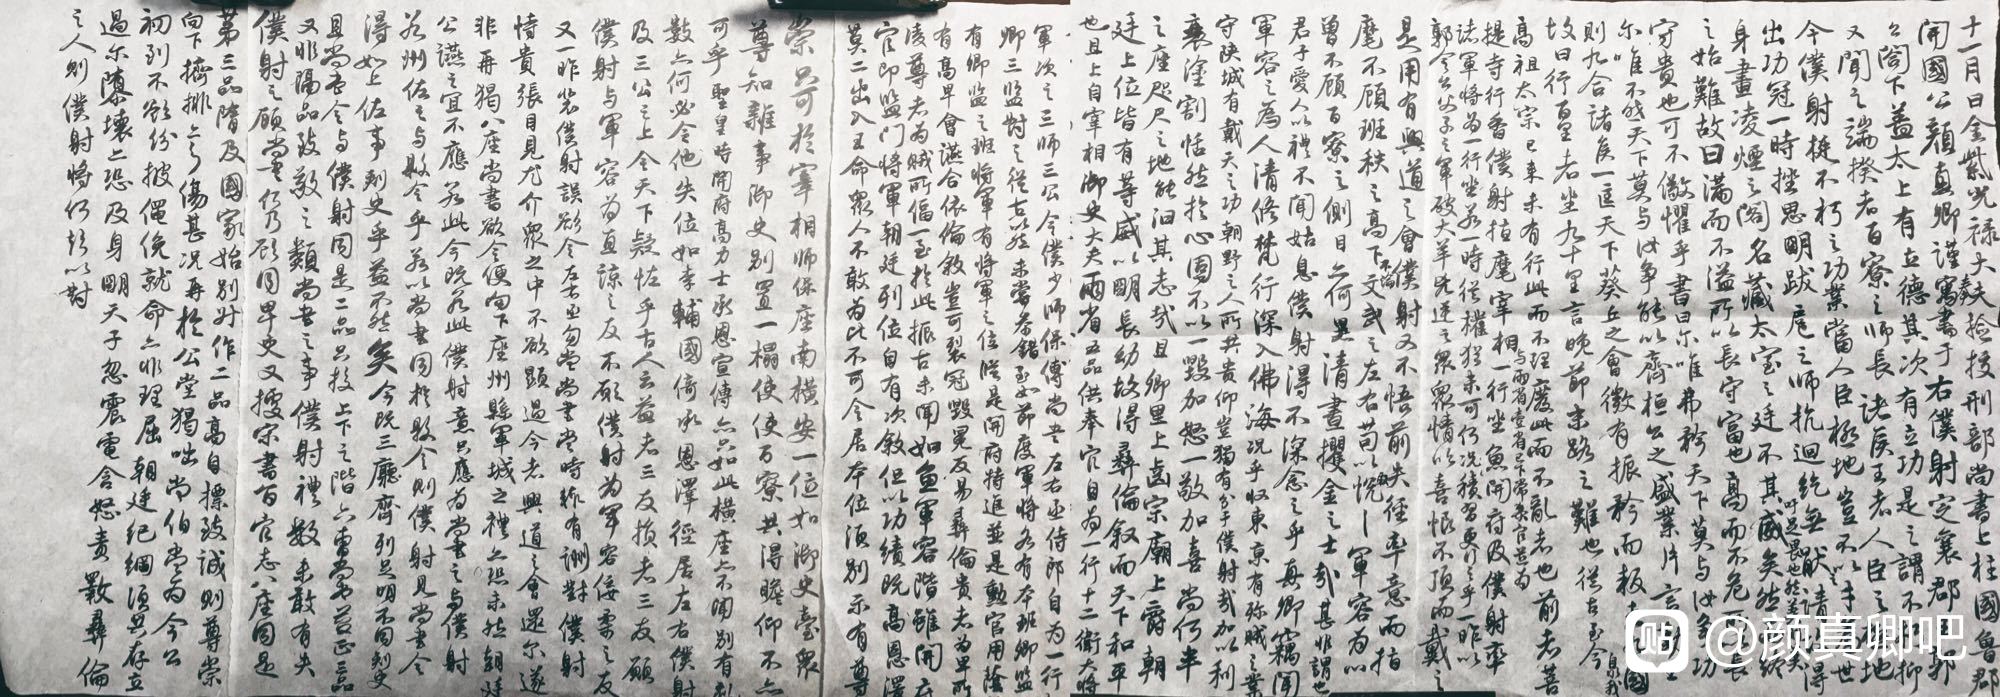 十一月日金紫光禄大夫检挍刑部尚書上柱國魯郡
開國公顔真卿謹寓書于右僕射定襄郡
公閤下盖太上有立德其次有立功是之謂不
又聞之端揆者百寮之師長諸侯王者人臣之極地
今僕射挺不朽之功業當人臣極地豈不以才
出功冠一時挫思明跋扈之師抗迴紇無猒之請
身畫凌煙之閣名藏太室之廷
之始難故曰滿而不溢所以長守富也高而不危
守貴也可不儆懼乎書曰尔唯弗矜天下莫与汝争功
尔唯不伐天下莫与汝争能以齊桓公之盛業片言
則九合諸侯一匡天下葵丘之會微有振矜而叛
故曰行百里者半九十里言晚節末路之難也從古至今
高祖太宗已来未有行此而不理廢此而不亂者也前者菩
提寺行香僕射指麾宰相与兩省臺省已下常参官並为
一行坐魚開府及僕射率諸軍将为一行坐若一時從權猶未可何况積習更行之乎一昨以
郭令公父子之軍破犬羊兇逆之衆衆情欣喜恨不頂而戴之
是用有興道之會僕射又不悟前失径率意而指
麾不顧班秩之高下不論文武之左右苟以取悦軍容为心
曾不顧百寮之側目亦何異清晝攫金之士哉甚非謂也
君子愛人以禮不聞姑息僕射得不深念之乎真卿竊聞
軍容之為人清修梵行深入佛海况乎収東京有殄賊之業
守陝城有戴天之功朝野之人所共貴仰豈獨有分于僕射哉加以利
衰塗割恬然於心固不以一毀加怒一敬加喜尚何半
之座咫尺之地能汩其志哉且卿里上齒宗廟上爵朝
廷上位皆有等威以明長幼故得彝倫叙而天下和平
也且上自宰相御史大夫兩省五品供奉官自为一行十二衛大将
軍次之三師三公令僕少師保傅尚书左右丞侍郎自为一行
卿三监對之從古以然未嘗参錯至如節度軍将各有本班卿监
有卿监之班将軍有将軍之位縱是開府特進並是勳官用蔭
有高卑會讌合依倫敘豈可裂冠毀冕反易彝倫貴者为卑所
凌尊者为賊所偪一至於此振古未聞如魚軍容階雖開府
官即监門将軍朝廷列位自有次敘但以功績既高恩澤
莫二出入王命衆人不敢为此不可令居本位須别示有尊
崇只可於宰相師保座南横安一位如御史臺衆
尊知雜事御史别置一榻使使百寮共得瞻仰不亦
可乎聖皇時開府高力士承恩宣傳亦只如此横座亦不聞别有禮
數亦何必令他失位如李輔國倚承恩澤徑居左右僕射
及三公之上令天下疑怪乎古人云益者三友損者三友願
僕射与軍容为直諒之友不願僕射为軍容佞柔之友
又一昨裴僕射誤欲令左右丞勾當尚書當時輙有詶對僕射
恃貴張目見尤介衆之中不欲顯過今者興道之會還尔遂
非再猲八座尚書欲令便向下座州縣軍城之禮亦恐未然朝廷
公讌之宜不應若此今既若此僕射意只應为尚書之与僕射
若州佐之与縣令乎若以尚書同於縣令則僕射見尚書令
得如上佐事刺史乎益不然矣今既三廳齊列足明不同刺史
且尚書令与僕射同是二品只挍上下之階六曹尚書並正三品
又非隔品致敬之類尚書之事僕射禮數未敢有失
僕射之顧尚书何乃欲同卑吏又據宋書百官志八座同是
第三品隋及國家始别升作二品高自摽致誠則尊崇
向下擠排無乃傷甚况再於公堂猲咄尚伯當为令公
初到不欲紛披僶俛就命亦非理屈朝廷紀綱須共存立
過尔隳壞亦恐及身明天子忽震電含怒責斁彝倫
之人則僕射将何辭以對
贴 @颜真卿吧